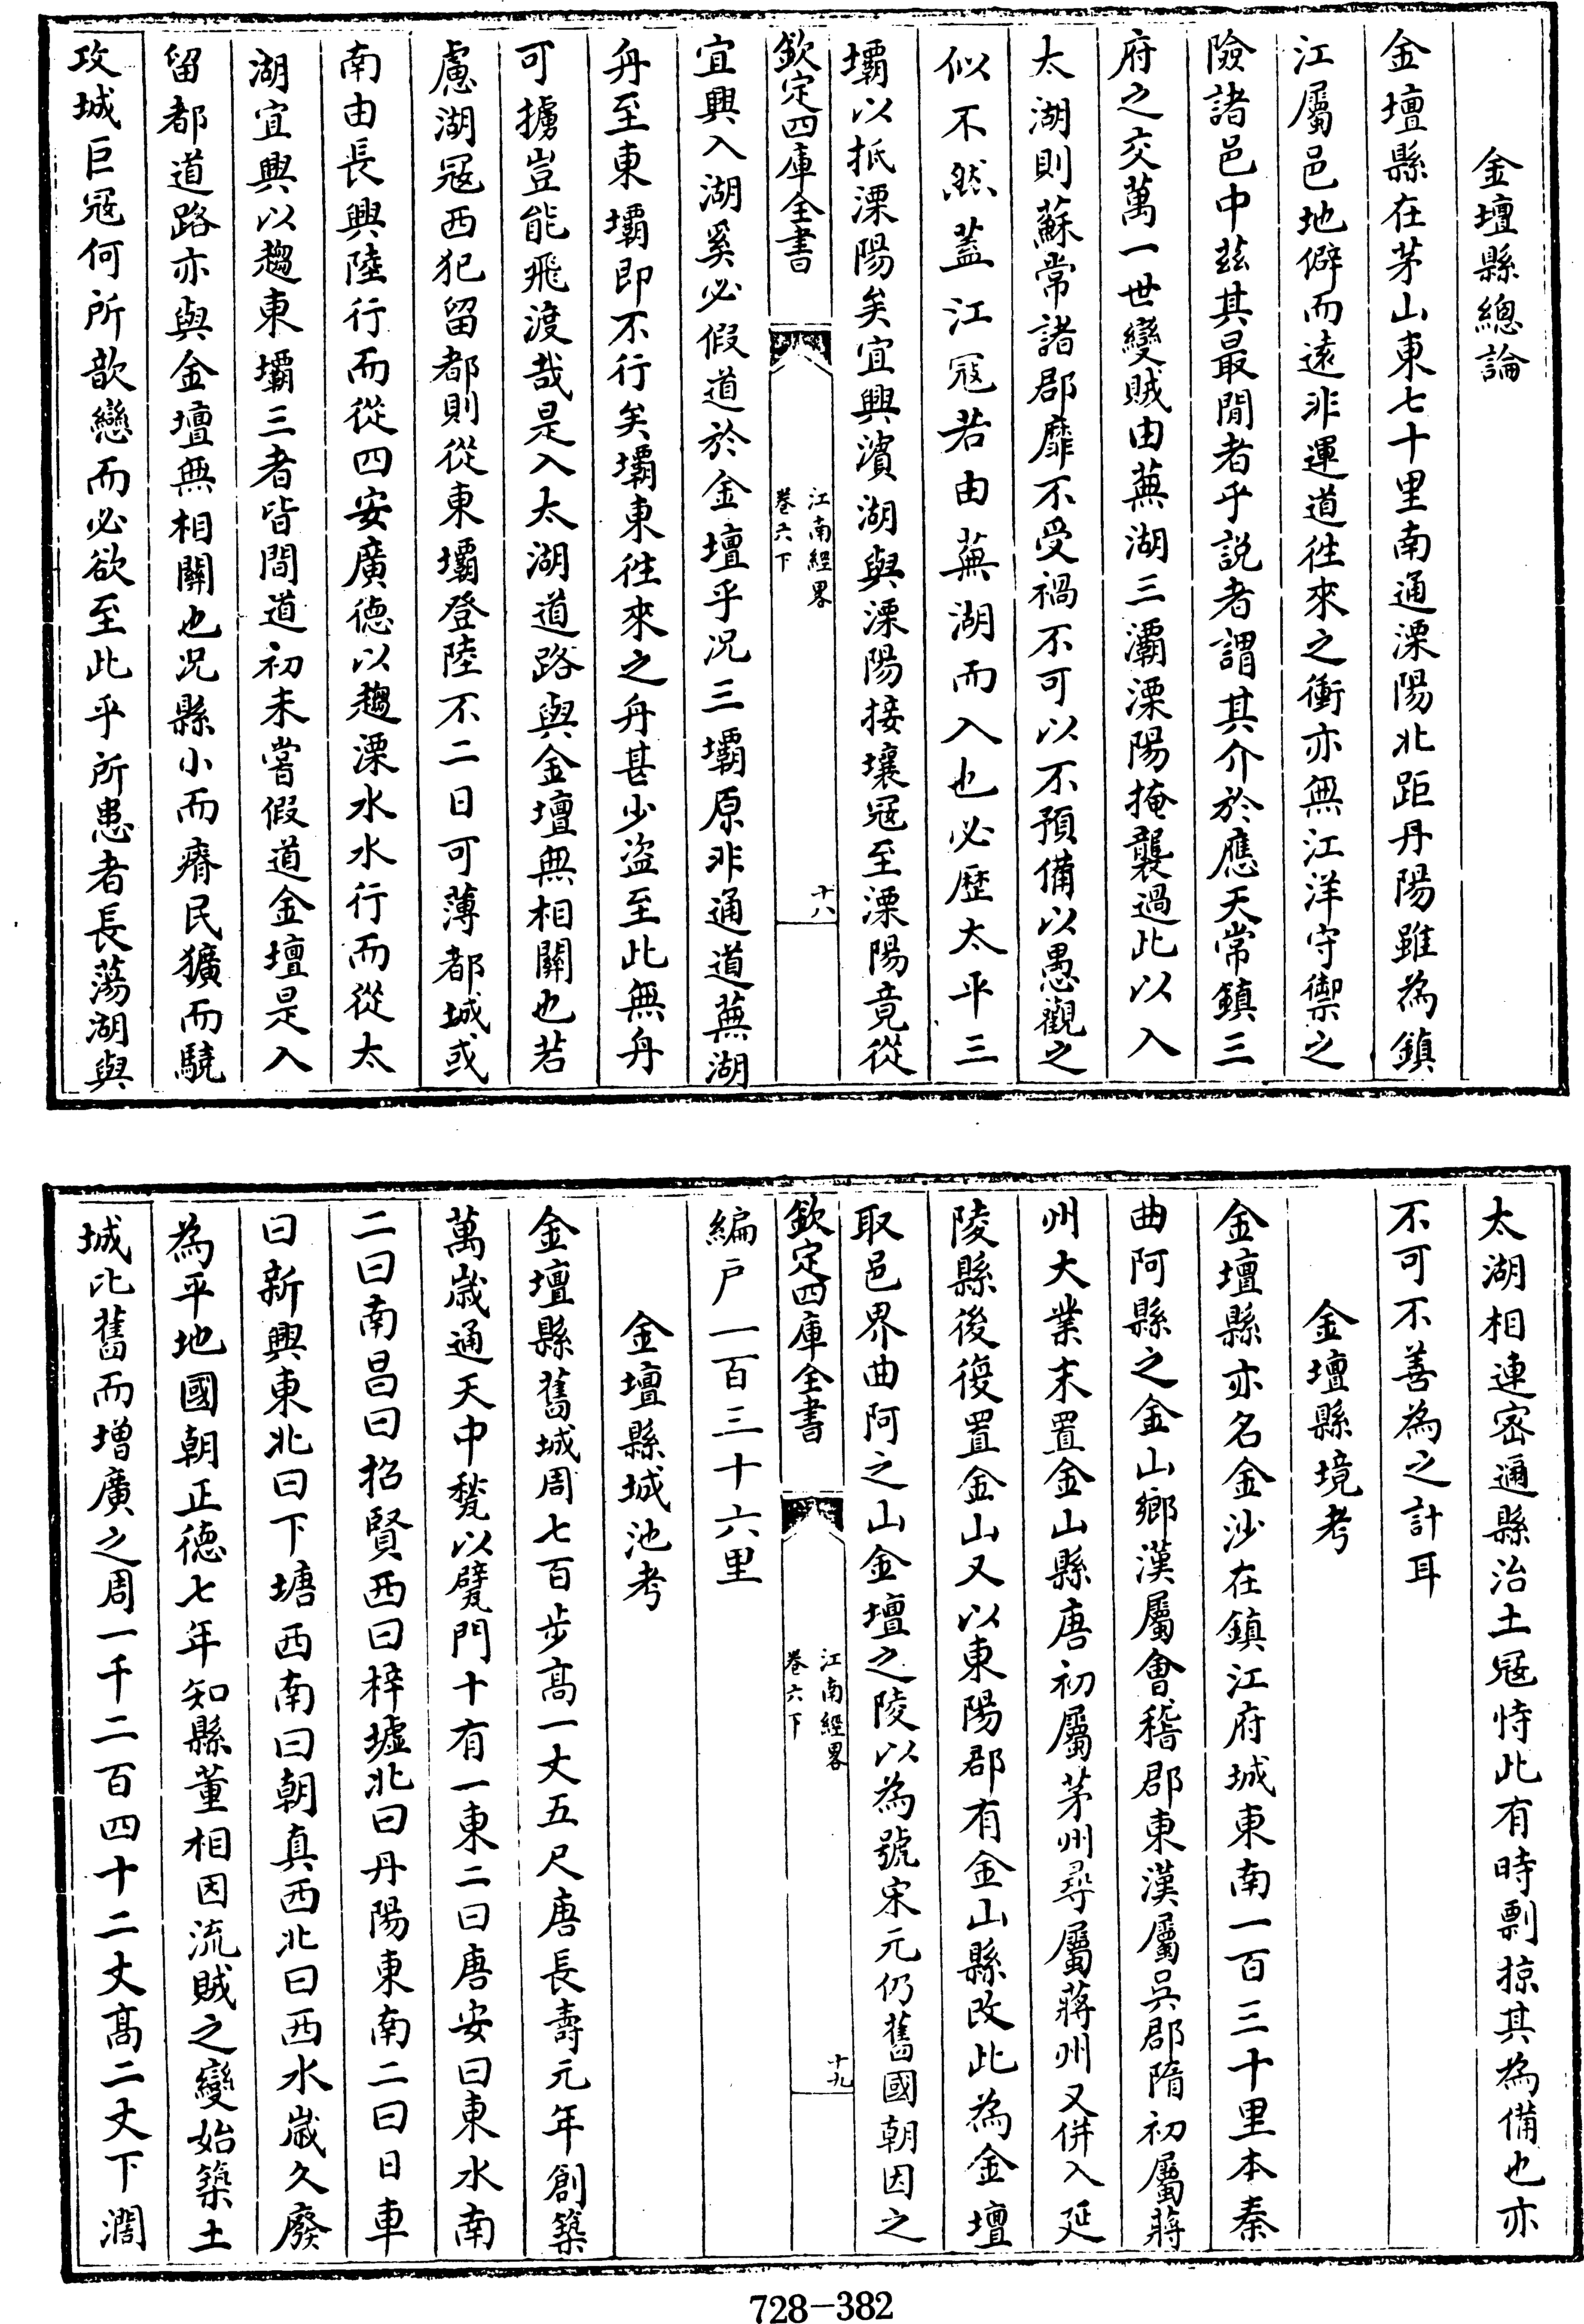 金壇縣總論
金壇縣在茅山東七十里南通溧陽北距丹陽雖為鎮
江屬邑地僻而遠非運道徃來之衝亦無江洋守禦之
險諸邑中茲其最閒者乎説者謂其介於應天常鎮三
府之交萬一世變賊由蕪湖三灞溧陽掩襲過此以入
太湖則蘇常諸郡靡不受禍不可以不預備以愚觀之
似不然葢江寇若由蕪湖而入也必歴太平三
壩以抵溧陽矣宜興濱湖與溧陽接壤寇至溧陽竟從
欽定四庫全書
江南經畧
卷六下
十八
宜興入湖奚必假道於金壇乎况三壩原非通道蕪湖
舟至東壩即不行矣壩東徃來之舟甚少盗至此無舟
可擄豈能飛渡哉是入太湖道路與金壇無相關也若
慮湖寇西犯留都則從東壩登陸不二日可薄都城或
南由長興陸行而從四安廣德以趨溧水水行而從太
湖宜興以趨東壩三者皆間道初未嘗假道金壇是入
留都道路亦與金壇無相關也况縣小而瘠民獷而驍
攻城巨寇何所歆戀而必欲至此乎所患者長蕩湖與
太湖相連密邇縣治土寇恃此有時剽掠其為備也亦
不可不善為之計耳
金壇縣境考
金壇縣亦名金沙在鎮江府城東南一百三十里本秦
曲阿縣之金山鄉漢屬會稽郡東漢屬吳郡隋初屬蔣
州大業末置金山縣唐初屬茅州尋屬蔣州又併入延
陵縣後復置金山又以東陽郡有金山縣改此為金壇
取邑界曲阿之山金壇之陵以為號宋元仍舊國朝因之
欽定四庫全書
江南經畧
卷六下
十九
編戸一百三十六里
金壇縣城池考
金壇縣舊城周七百步高一丈五尺唐長壽元年創築
萬歲通天中甃以甓門十有一東二曰唐安曰東水南
二曰南昌曰招賢西曰梓墟北曰丹陽東南二曰日車
曰新興東北曰下塘西南曰朝真西北曰西水歲久廢
為平地國朝正德七年知縣董相因流賊之變始築土
城比舊而增廣之周一千二百四十二丈高二丈下濶
728-382